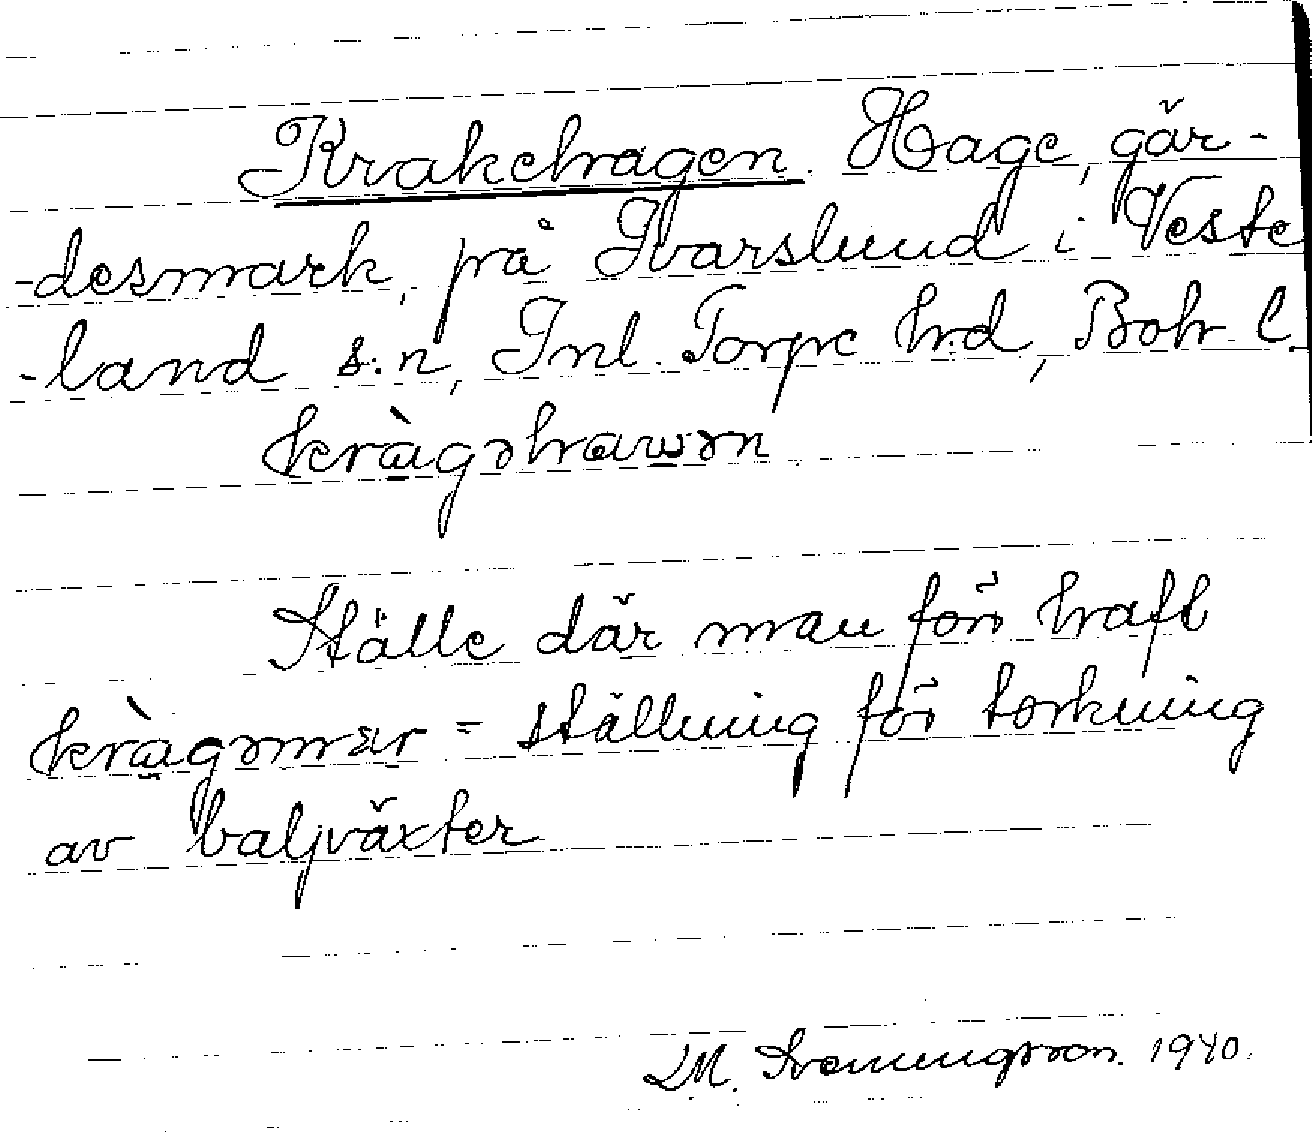 Krakehagen. Hage, gär-
-desmark, på Ivarslund i Veste
-land s:n, Inl. Torpe hd, Boh l.
kràgəhawən
Ställe där man förr haft
kràgəmær = ställning för torkning
av baljväxter
1940.